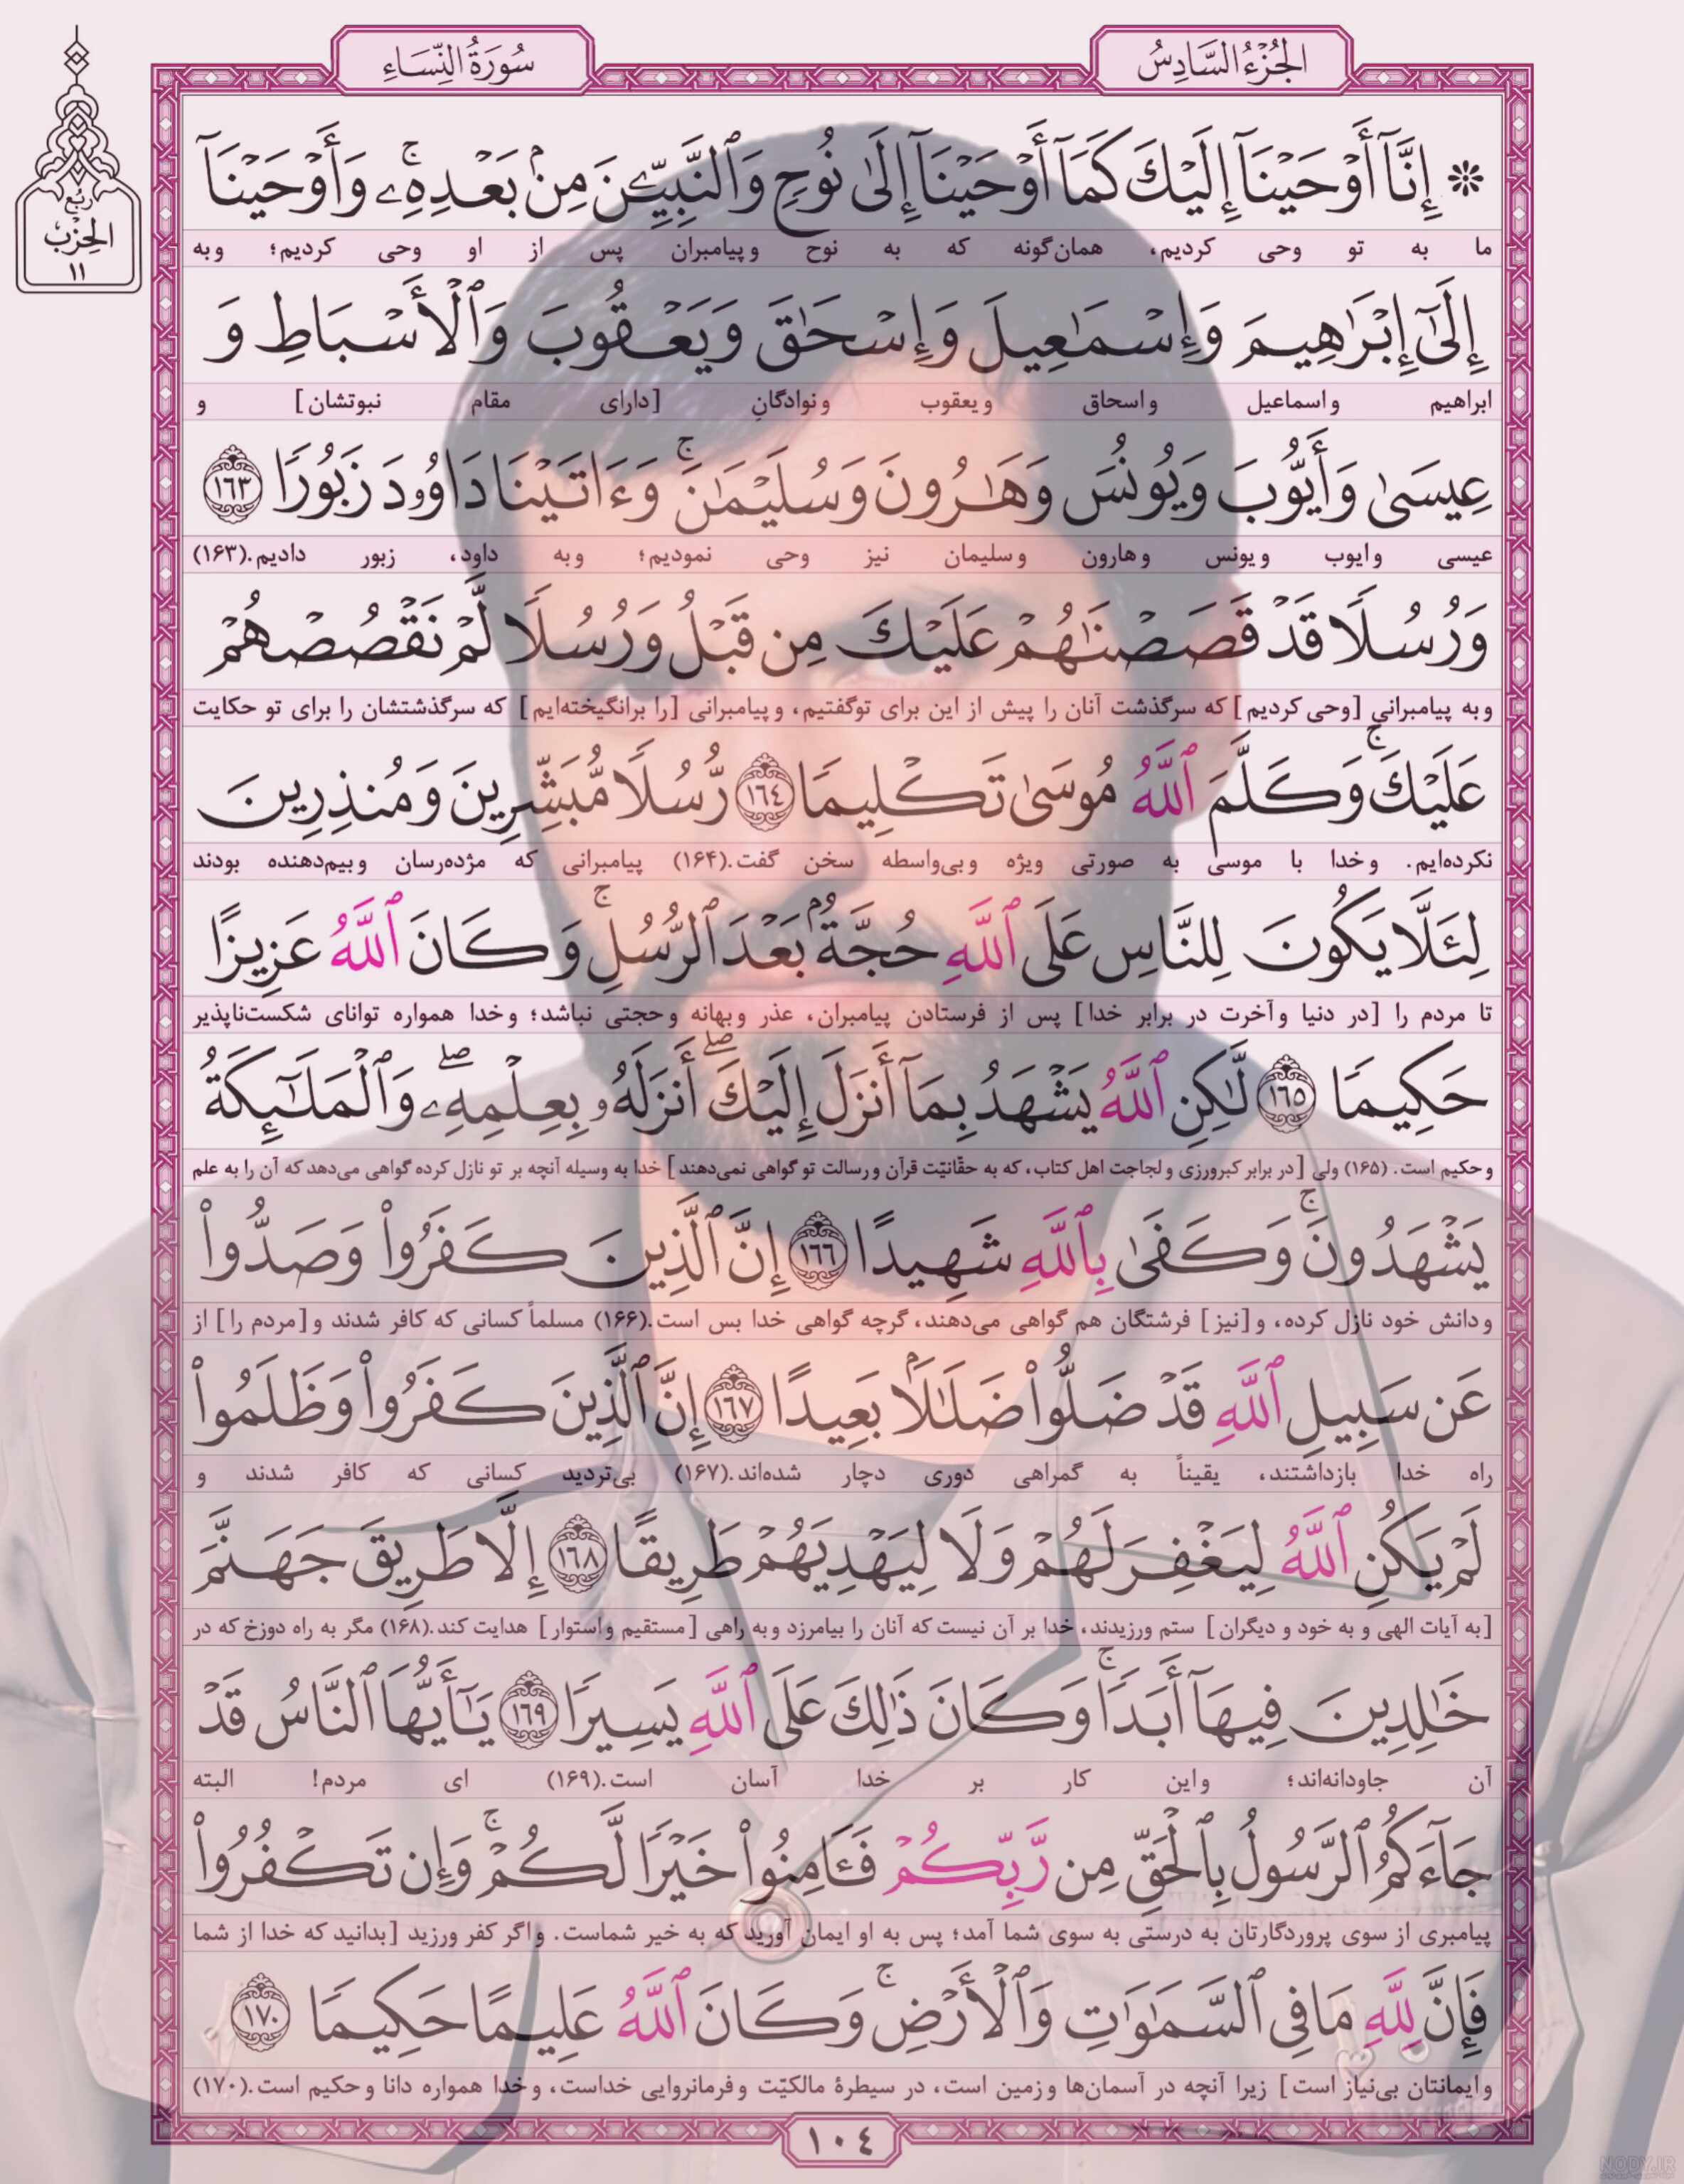 الجُزْءُ السَّادِسُ
سُورَةُ النِّسَاءِ
رُبْع
الحِزْب
١١
۞ إِنَّآ أَوْحَيْنَآ إِلَيْكَ كَمَآ أَوْحَيْنَآ إِلَىٰ نُوحٍ وَٱلنَّبِيِّـۧنَ مِنۢ بَعْدِهِۦۚ وَأَوْحَيْنَآ
ما به تو وحی کردیم، همان‌گونه که به نوح وپیامبران پس از او وحی کردیم؛ وبه
إِلَىٰٓ إِبْرَٰهِيمَ وَإِسْمَـٰعِيلَ وَإِسْحَـٰقَ وَيَعْقُوبَ وَٱلْأَسْبَاطِ وَ
ابراهیم واسماعیل واسحاق ویعقوب ونوادگانِ [دارای مقام نبوتشان] و
عِيسَىٰ وَأَيُّوبَ وَيُونُسَ وَهَـٰرُونَ وَسُلَيْمَـٰنَۚ وَءَاتَيْنَا دَاوُۥدَ زَبُورًا ١٦٣
عیسی وایوب ویونس وهارون وسلیمان نیز وحی نمودیم؛ وبه داود، زبور دادیم.(۱۶۳)
وَرُسُلًا قَدْ قَصَصْنَـٰهُمْ عَلَيْكَ مِن قَبْلُ وَرُسُلًا لَّمْ نَقْصُصْهُمْ
وبه پیامبرانی [وحی کردیم] که سرگذشت آنان را پیش از این برای توگفتیم، وپیامبرانی [را برانگیخته‌ایم] که سرگذشتشان را برای تو حکایت
عَلَيْكَۚ وَكَلَّمَ ٱللَّهُ مُوسَىٰ تَكْلِيمًا ١٦٤ رُّسُلًا مُّبَشِّرِينَ وَمُنذِرِينَ
نکرده‌ایم. وخدا با موسی به صورتی ویژه وبی‌واسطه سخن گفت.(۱۶۴) پیامبرانی که مژده‌رسان وبیم‌دهنده بودند
لِئَلَّا يَكُونَ لِلنَّاسِ عَلَى ٱللَّهِ حُجَّةٌۢ بَعْدَ ٱلرُّسُلِۚ وَكَانَ ٱللَّهُ عَزِيزًا
تا مردم را [در دنیا وآخرت در برابر خدا] پس از فرستادن پیامبران، عذر وبهانه وحجتی نباشد؛ وخدا همواره توانای شکست‌ناپذیر
حَكِيمًا ١٦٥ لَّـٰكِنِ ٱللَّهُ يَشْهَدُ بِمَآ أَنزَلَ إِلَيْكَۖ أَنزَلَهُۥ بِعِلْمِهِۦۖ وَٱلْمَلَـٰٓئِكَةُ
وحکیم است. (۱۶۵) ولی [در برابر کبرورزی ولجاجت اهل کتاب، که به حقّانیّت قرآن ورسالت تو گواهی نمی‌دهند] خدا به وسیله آنچه بر تو نازل کرده گواهی می‌دهد که آن را به علم
يَشْهَدُونَۚ وَكَفَىٰ بِٱللَّهِ شَهِيدًا ١٦٦ إِنَّ ٱلَّذِينَ كَفَرُوا۟ وَصَدُّوا۟
ودانش خود نازل کرده، و[نیز] فرشتگان هم گواهی می‌دهند، گرچه گواهی خدا بس است.(۱۶۶) مسلماً کسانی که کافر شدند و[مردم را] از
عَن سَبِيلِ ٱللَّهِ قَدْ ضَلُّوا۟ ضَلَـٰلًۢا بَعِيدًا ١٦٧ إِنَّ ٱلَّذِينَ كَفَرُوا۟ وَظَلَمُوا۟
راه خدا بازداشتند، یقیناً به گمراهی دوری دچار شده‌اند.(۱۶۷) بی‌تردید کسانی که کافر شدند و
لَمْ يَكُنِ ٱللَّهُ لِيَغْفِرَ لَهُمْ وَلَا لِيَهْدِيَهُمْ طَرِيقًا ١٦٨ إِلَّا طَرِيقَ جَهَنَّمَ
[به آیات الهی و به خود و دیگران] ستم ورزیدند، خدا بر آن نیست که آنان را بیامرزد وبه راهی [مستقیم واستوار] هدایت کند.(۱۶۸) مگر به راه دوزخ که در
خَـٰلِدِينَ فِيهَآ أَبَدًاۚ وَكَانَ ذَٰلِكَ عَلَى ٱللَّهِ يَسِيرًا ١٦٩ يَـٰٓأَيُّهَا ٱلنَّاسُ قَدْ
آن جاودانه‌اند؛ واین کار بر خدا آسان است.(۱۶۹) ای مردم! البته
جَآءَكُمُ ٱلرَّسُولُ بِٱلْحَقِّ مِن رَّبِّكُمْ فَـَٔامِنُوا۟ خَيْرًا لَّكُمْۚ وَإِن تَكْفُرُوا۟
پیامبری از سوی پروردگارتان به درستی به سوی شما آمد؛ پس به او ایمان آورید که به خیر شماست. واگر کفر ورزید [بدانید که خدا از شما
فَإِنَّ لِلَّهِ مَا فِى ٱلسَّمَـٰوَٰتِ وَٱلْأَرْضِۚ وَكَانَ ٱللَّهُ عَلِيمًا حَكِيمًا ١٧٠
وایمانتان بی‌نیاز است] زیرا آنچه در آسمان‌ها وزمین است، در سیطرهٔ مالکیّت وفرمانروایی خداست، وخدا همواره دانا وحکیم است.(۱۷۰)
١٠٤
NODY.IR